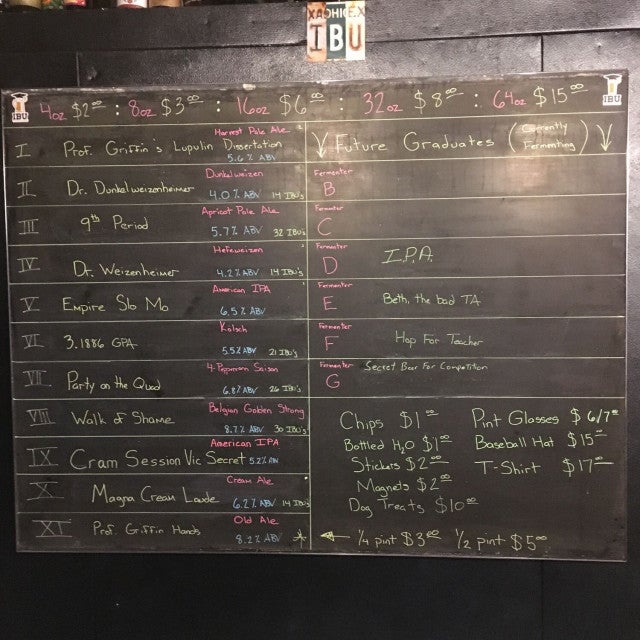 XAΩHIGEX
IBU
IBU
4oz $2.00 : 8oz $3.00 : 16oz $6.00 : 32oz $8.00 : 64oz $15.00
IBU
I Prof. Griffin's Lupulin Dissertation Harvest Pale Ale 5.6% ABV
II Dr. Dunkelweizenheimer Dunkelweizen 4.0% ABV 14 IBU's
III 9th Period Apricot Pale Ale 5.7% ABV 32 IBU's
IV Dr. Weizenheimer Hefeweizen 4.2% ABV 14 IBU's
V Empire Slo Mo American IPA 6.5% ABV
VI 3.1886 GPA Kolsch 5.5% ABV 21 IBU's
VII Party on the Quad 4-Peppercorn Saison 6.8% ABV 26 IBU's
VIII Walk of Shame Belgian Golden Strong 8.7% ABV 30 IBU's
IX Cram Session Vic Secret American IPA 5.2% ABV
X Magna Cream Laude Cream Ale 6.2% ABV 14 IBU's
XI Prof. Griffin Hands Old Ale 8.2% ABV *
Future Graduates (Currently Fermenting)
Fermenter B
Fermenter C
Fermenter D I.P.A.
Fermenter E Beth, the bad TA
Fermenter F Hop For Teacher
Fermenter G Secret Beer For Competition
Chips $1.00
Bottled H2O $1.00
Stickers $2.00
Magnets $2.00
Dog Treats $10.00
Pint Glasses $6/7.00
Baseball Hat $15.00
T-Shirt $17.00
* ← 1/4 pint $3.00 1/2 pint $5.00